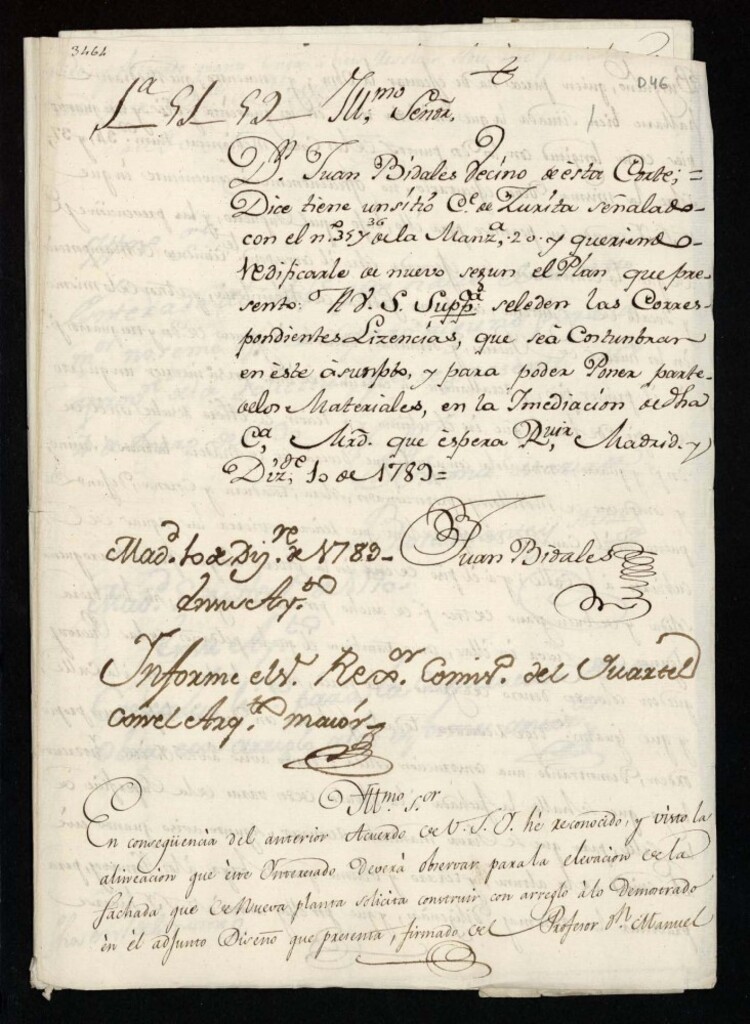 3464
D46
1ª 51 52 Ill,mo Señor,
Dn Juan Bidales Vecino de ésta Corte; =
Dice tiene un sitio Ce de Zurita señalado
con el no 35 y 36 de la Manza, 20. y queriendo
redificarle de nuevo segun el Plan que pre-
sento: A V. S. Suppca se le den las Corres-
pondientes Lizencias, que seá Costunbran
en èste ásunpto, y para poder Poner parte
delos Materiales, en la Imediacion de dha
Ca, Mrd. que èspera Rvir, Madrid y
Diz,de 10 de 1789=
Juan Bidales
Madd 10 de Diz.re de 1789-
En su Ayto
Informe el Sr. Rexor. Comiso. del Quartel
con el Arqto maiór-
Illmo Sor
En conseqüencia del anterior Acuerdo de V. S. I. hé reconocido, y visto la
alineacion que éste Interesado deverá observar para la elevacion de la
fachada que de Nueva planta solicita construir con arreglo álo Demostrado
en él adjunto Diseño que presenta, firmado del Profesor Dn Manuel